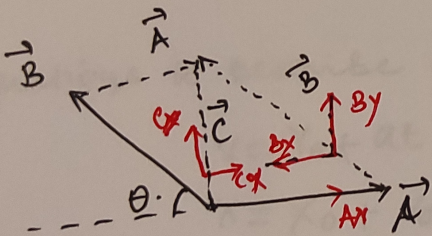 A
B
B
By
Cy
C
Bx
Cx
θ
Ax
A